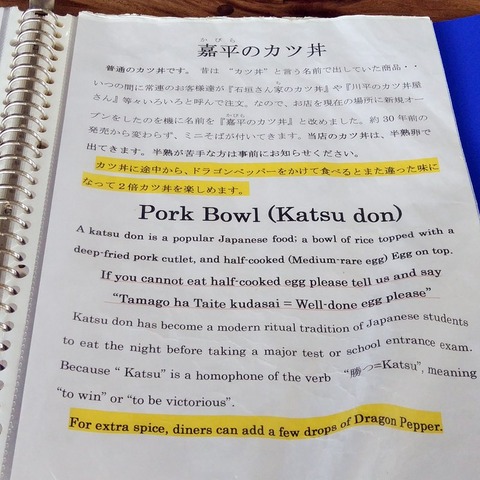 かびら
嘉平のカツ丼
普通のカツ丼です。 昔は “カツ丼” と言う名前で出していた商品・・
いつの間に常連のお客様達が『石垣さん家のカツ丼』や『川平のカツ丼屋
さん』等々いろいろと呼んで注文。なので、お店を現在の場所に新規オー
プンをしたのを機に名前を『嘉平のカツ丼』と改めました。約 30 年前の
発売から変わらず、ミニそばが付いてきます。当店のカツ丼は、半熟卵で
出てきます。半熟が苦手な方は事前にお知らせください。
カツ丼に途中から、ドラゴンペッパーをかけて食べるとまた違った味に
なって２倍カツ丼を楽しめます。
Pork Bowl (Katsu don)
A katsu don is a popular Japanese food; a bowl of rice topped with a
deep-fried pork cutlet, and half-cooked (Medium-rare egg) Egg on top.
If you cannot eat half-cooked egg please tell us and say
“Tamago ha Taite kudasai = Well-done egg please”
Katsu don has become a modern ritual tradition of Japanese students
to eat the night before taking a major test or school entrance exam.
Because “ Katsu” is a homophone of the verb “勝つ=Katsu”, meaning
“to win” or “to be victorious”.
For extra spice, diners can add a few drops of Dragon Pepper.